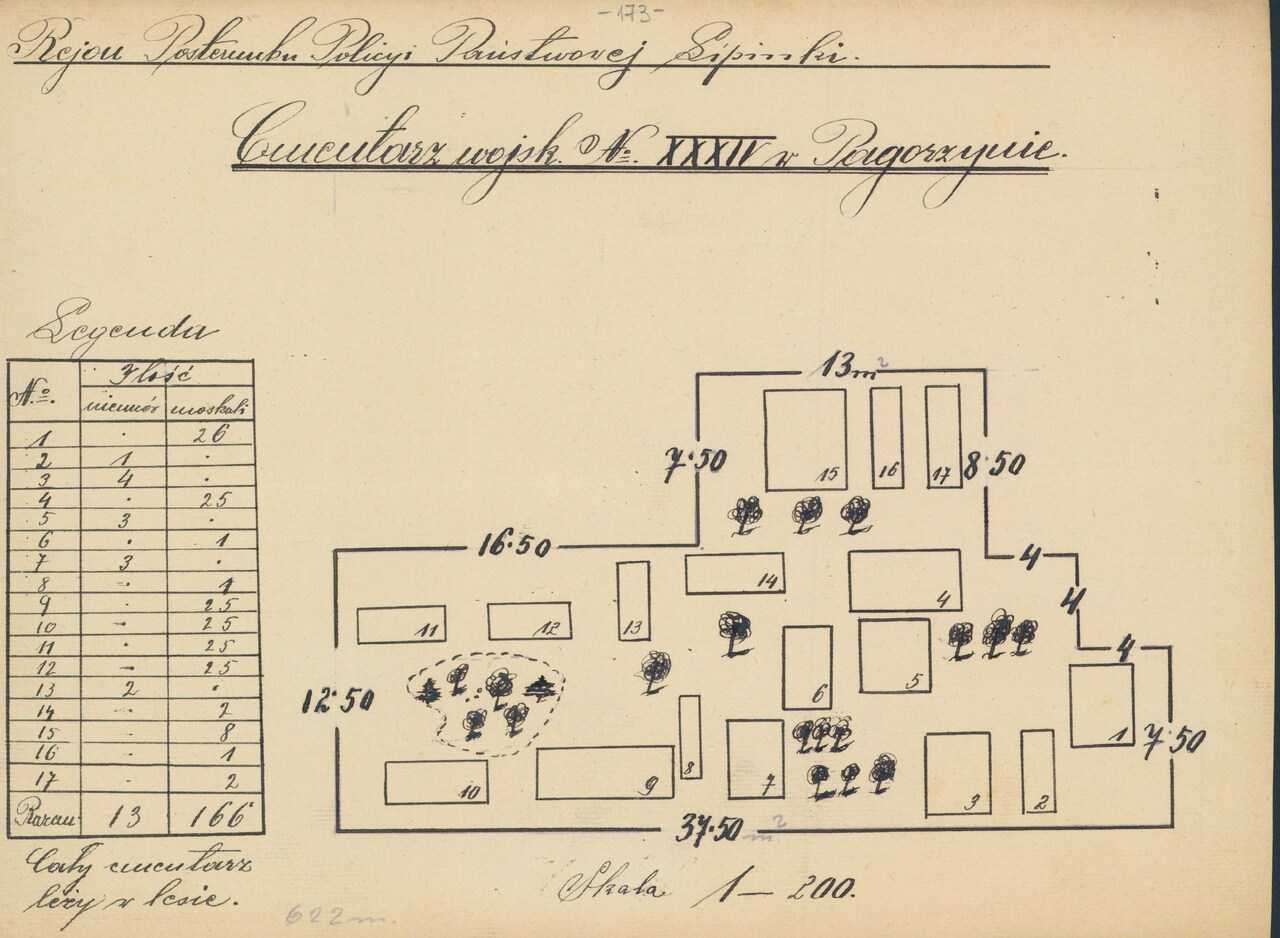 -173-
Rejon Posterunku Policyi Państwowej Lipinki.
Cmentarz wojsk. No. XXXIV w Pagorzynie.
Legenda
No. Ilość
niemców moskali
1 · 26
2 1 ·
3 4 ·
4 · 25
5 3 ·
6 · 1
7 3 ·
8 - 1
9 · 25
10 - 25
11 · 25
12 - 25
13 2 ·
14 - 2
15 - 8
16 - 1
17 - 2
Razem 13 166
Cały cmentarz
leży w lesie.
622 m.
13 m2
7·50
8·50
15 16 17
16·50
4
4
4
14
4
11 12 13
6
5
12·50
1
7·50
10
9
8
7
3
2
37·50 m2
Skala 1 — 200.